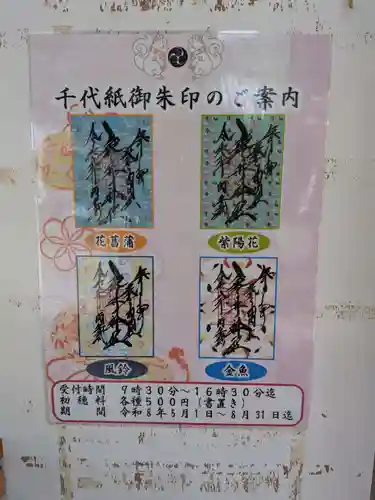 千代紙御朱印のご案内
花菖蒲
紫陽花
風鈴
金魚
受付時間 9時30分~16時30分迄
初穂料 各種500円(書置き)
期間 令和8年5月1日~8月31日迄